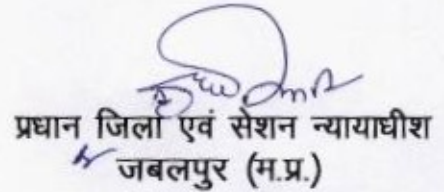 प्रधान जिला एवं सेशन न्यायाधीश
जबलपुर (म.प्र.)